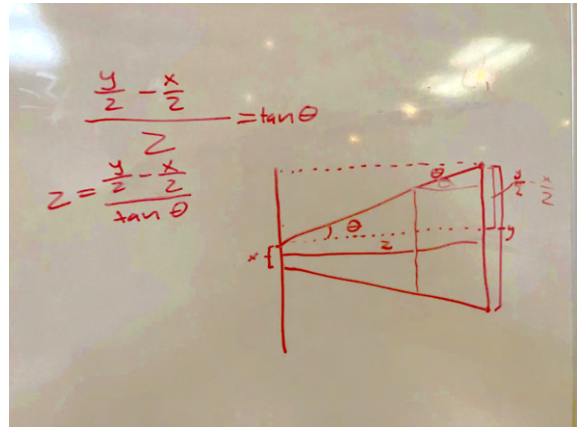 y/2 - x/2
z
= tan θ
z = y/2 - x/2
tan θ
θ
y/2 - x/2
θ
z
y
x